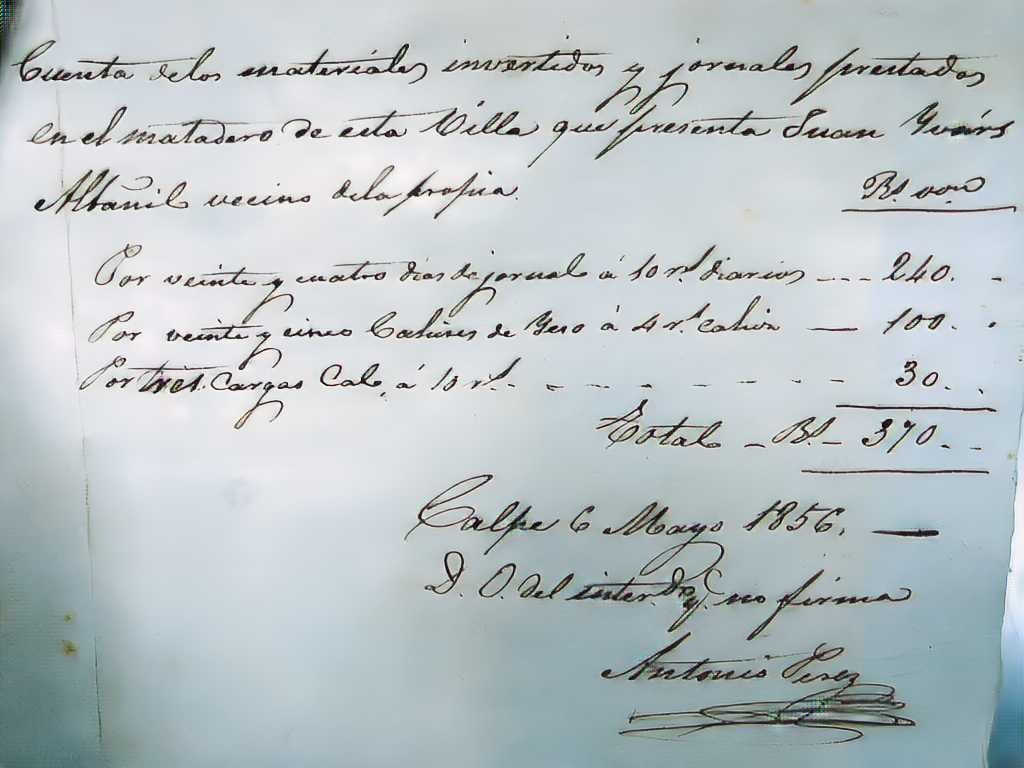 Cuenta delos materiales invertidos y jornales prestados
en el matadero de esta Villa que presenta Juan Yvárs
Albañil vecino dela propia.
Rs. von
Por veinte y cuatro dias de jornal á 10 rs. diarios --- 240. -
Por veinte y cinco Cahices de Yeso á 4 rs. cahiz — 100. .
Por tres Cargas Cal, á 10 rs. - - - - - - - - 30. .
Total - Rs. - 370. - -
Calpe 6 Mayo 1856. —
D. O. del inter.do q.e no firma
Antonio Perez